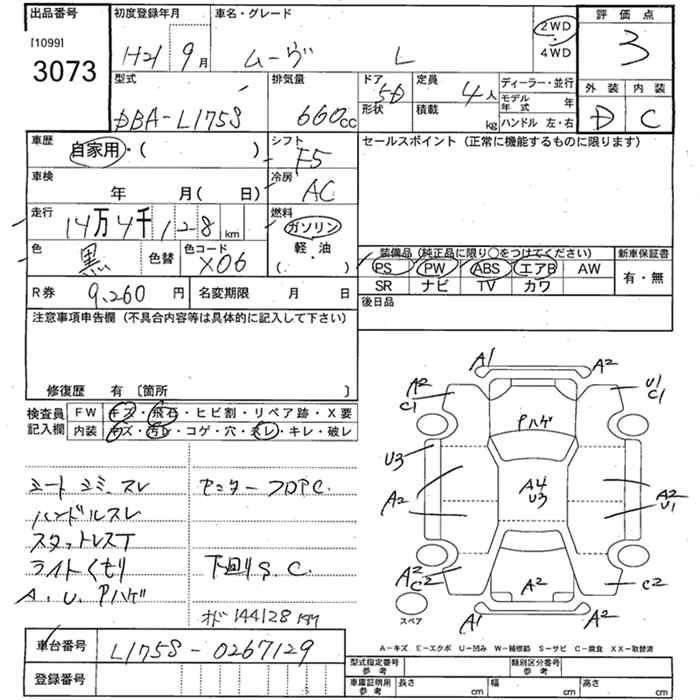 出品番号
[1099]
3073
初度登録年月
H21 9月
車名・グレード
ムーヴ L
2WD
4WD
評価点
3
外装 内装
D C
型式
DBA-L175S
排気量
660cc
ドア
5D
形状
定員
4人
積載
kg
ディーラー・並行
モデル年式 年
ハンドル 左・右
車歴
自家用・( )
シフト
F5
セールスポイント(正常に機能するものに限ります)
車検
年 月( 日)
冷房
AC
走行
14万4千128km
燃料
ガソリン
軽・油
( . )
色
黒
色替
色コード
X06
装備品(純正品に限り○をつけてください)
新車保証書
PS PW ABS エアB AW
SR ナビ TV カワ
有・無
R券 9,260円
名変期限 月 日
後日品
注意事項申告欄(不具合内容等は具体的に記入して下さい)
修復歴 有[箇所 ]
検査員記入欄
FW キズ・飛石・ヒビ割・リペア跡・X要
内装 キズ・汚レ・コゲ・穴・スレ・キレ・破レ
シート シミ.スレ
ハンドルスレ
スタットレスT
ライトくもり
A.U.Pハゲ
フロアC.
下回りS.C.
オド 144128KM
A1
A2
A2
C1
U1
C1
Pハゲ
U3
A2
A4
U3
A2
U1
A2
C2
A2
C2
A1
A2
スペア
A−キズ E−エクボ U−凹み W−補修跡 S−サビ C−腐食 XX−取替済
車台番号
L175S-0267129
登録番号
型式指定番号
参考
類別区分番号
参考
車庫証明用
参考
長さ cm
幅 cm
高さ cm